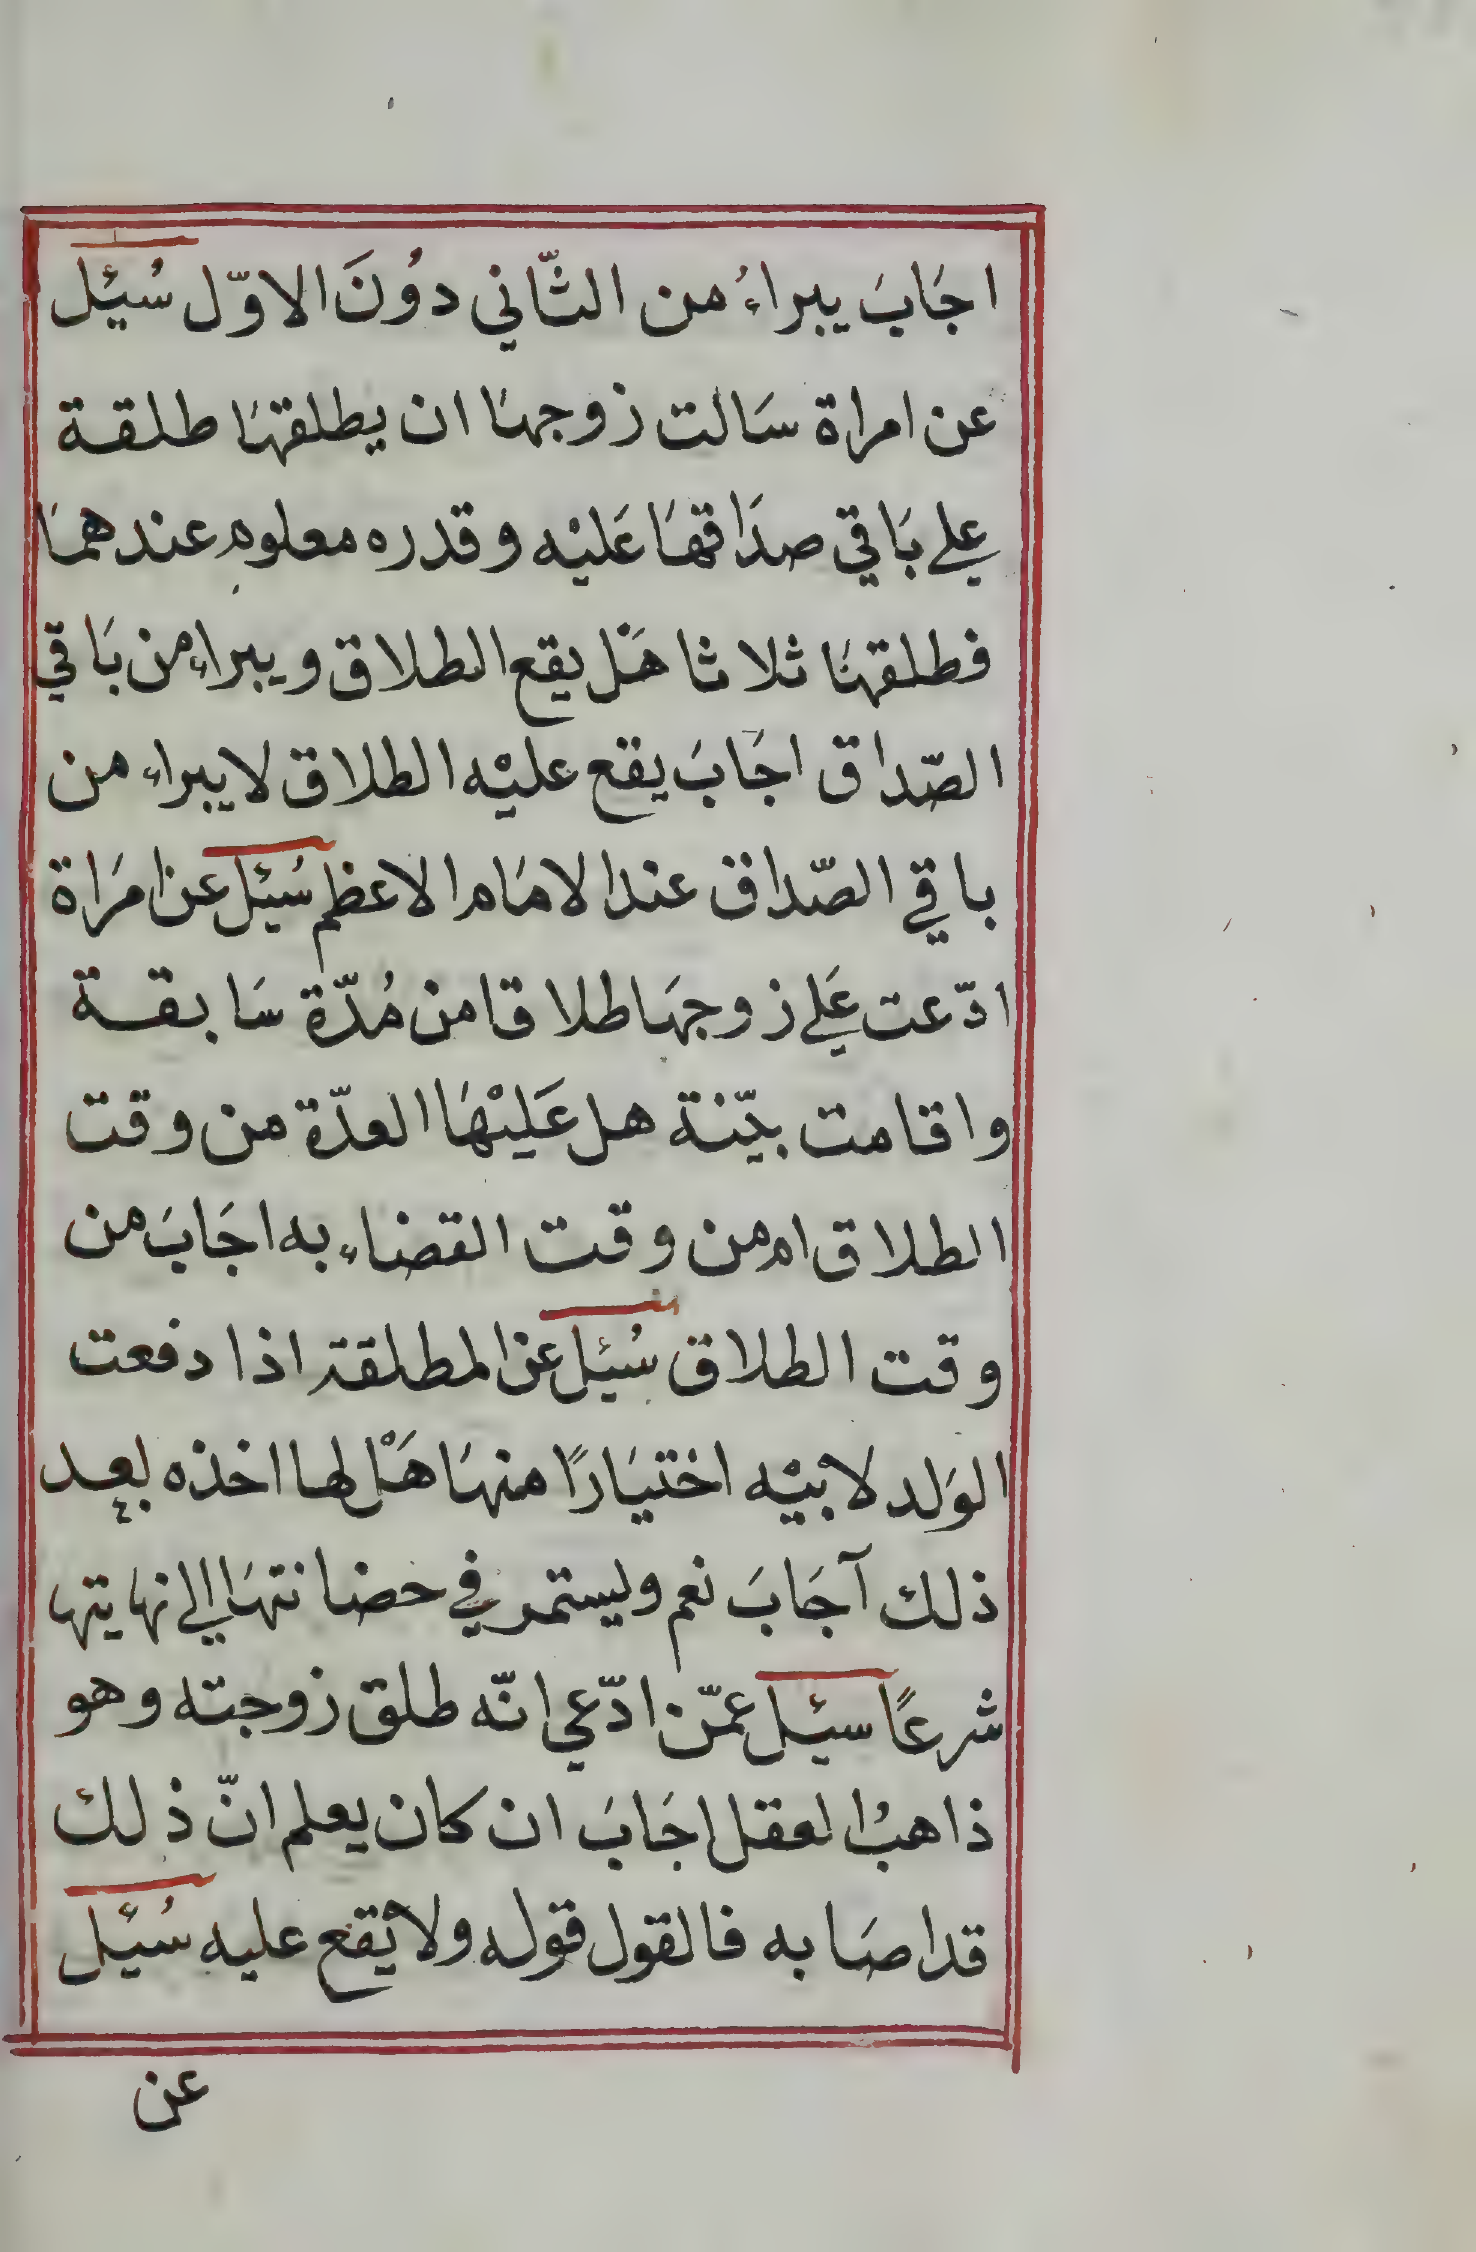 اجَابَ يبراءُ من الثّاني دوُنَ الاوّل سُئل
عن امراة سَالت زوجهَا ان يطلقهَا طلقة
علي بَاقي صدَاقهَا عَليْه وقدره معلوم عندهمَا
فطلقهَا ثلاثا هَل يقع الطلاق ويبراء من بَاقي
الصّداق اجَابَ يقع عليْه الطلاق لا يبراء من
باقي الصّداق عند الامَام الاعظم سُئل عن امرَاة
ادّعت عَلي زوجهَا طلاقا من مُدّة سَابقة
واقامت بيّنة هل عَليْهَا العدّة من وقت
الطلاق ام من وقت القضاء به اجَابَ من
وقت الطلاق سُئل عن المطلقة اذا دفعت
الوَلد لابيْه اختيَارًا منهَا هَلْ لها اخذه بعد
ذلك آجَابَ نعم ويستمر في حضانتهَا الي نهايتها
شرعًا سئل عمّن ادّعي انّه طلق زوجته وهو
ذاهبُ العقل اجَابَ ان كان يعلم انّ ذلك
قد اصَابه فالقول قوله ولا يقع عليه سُئل
عن